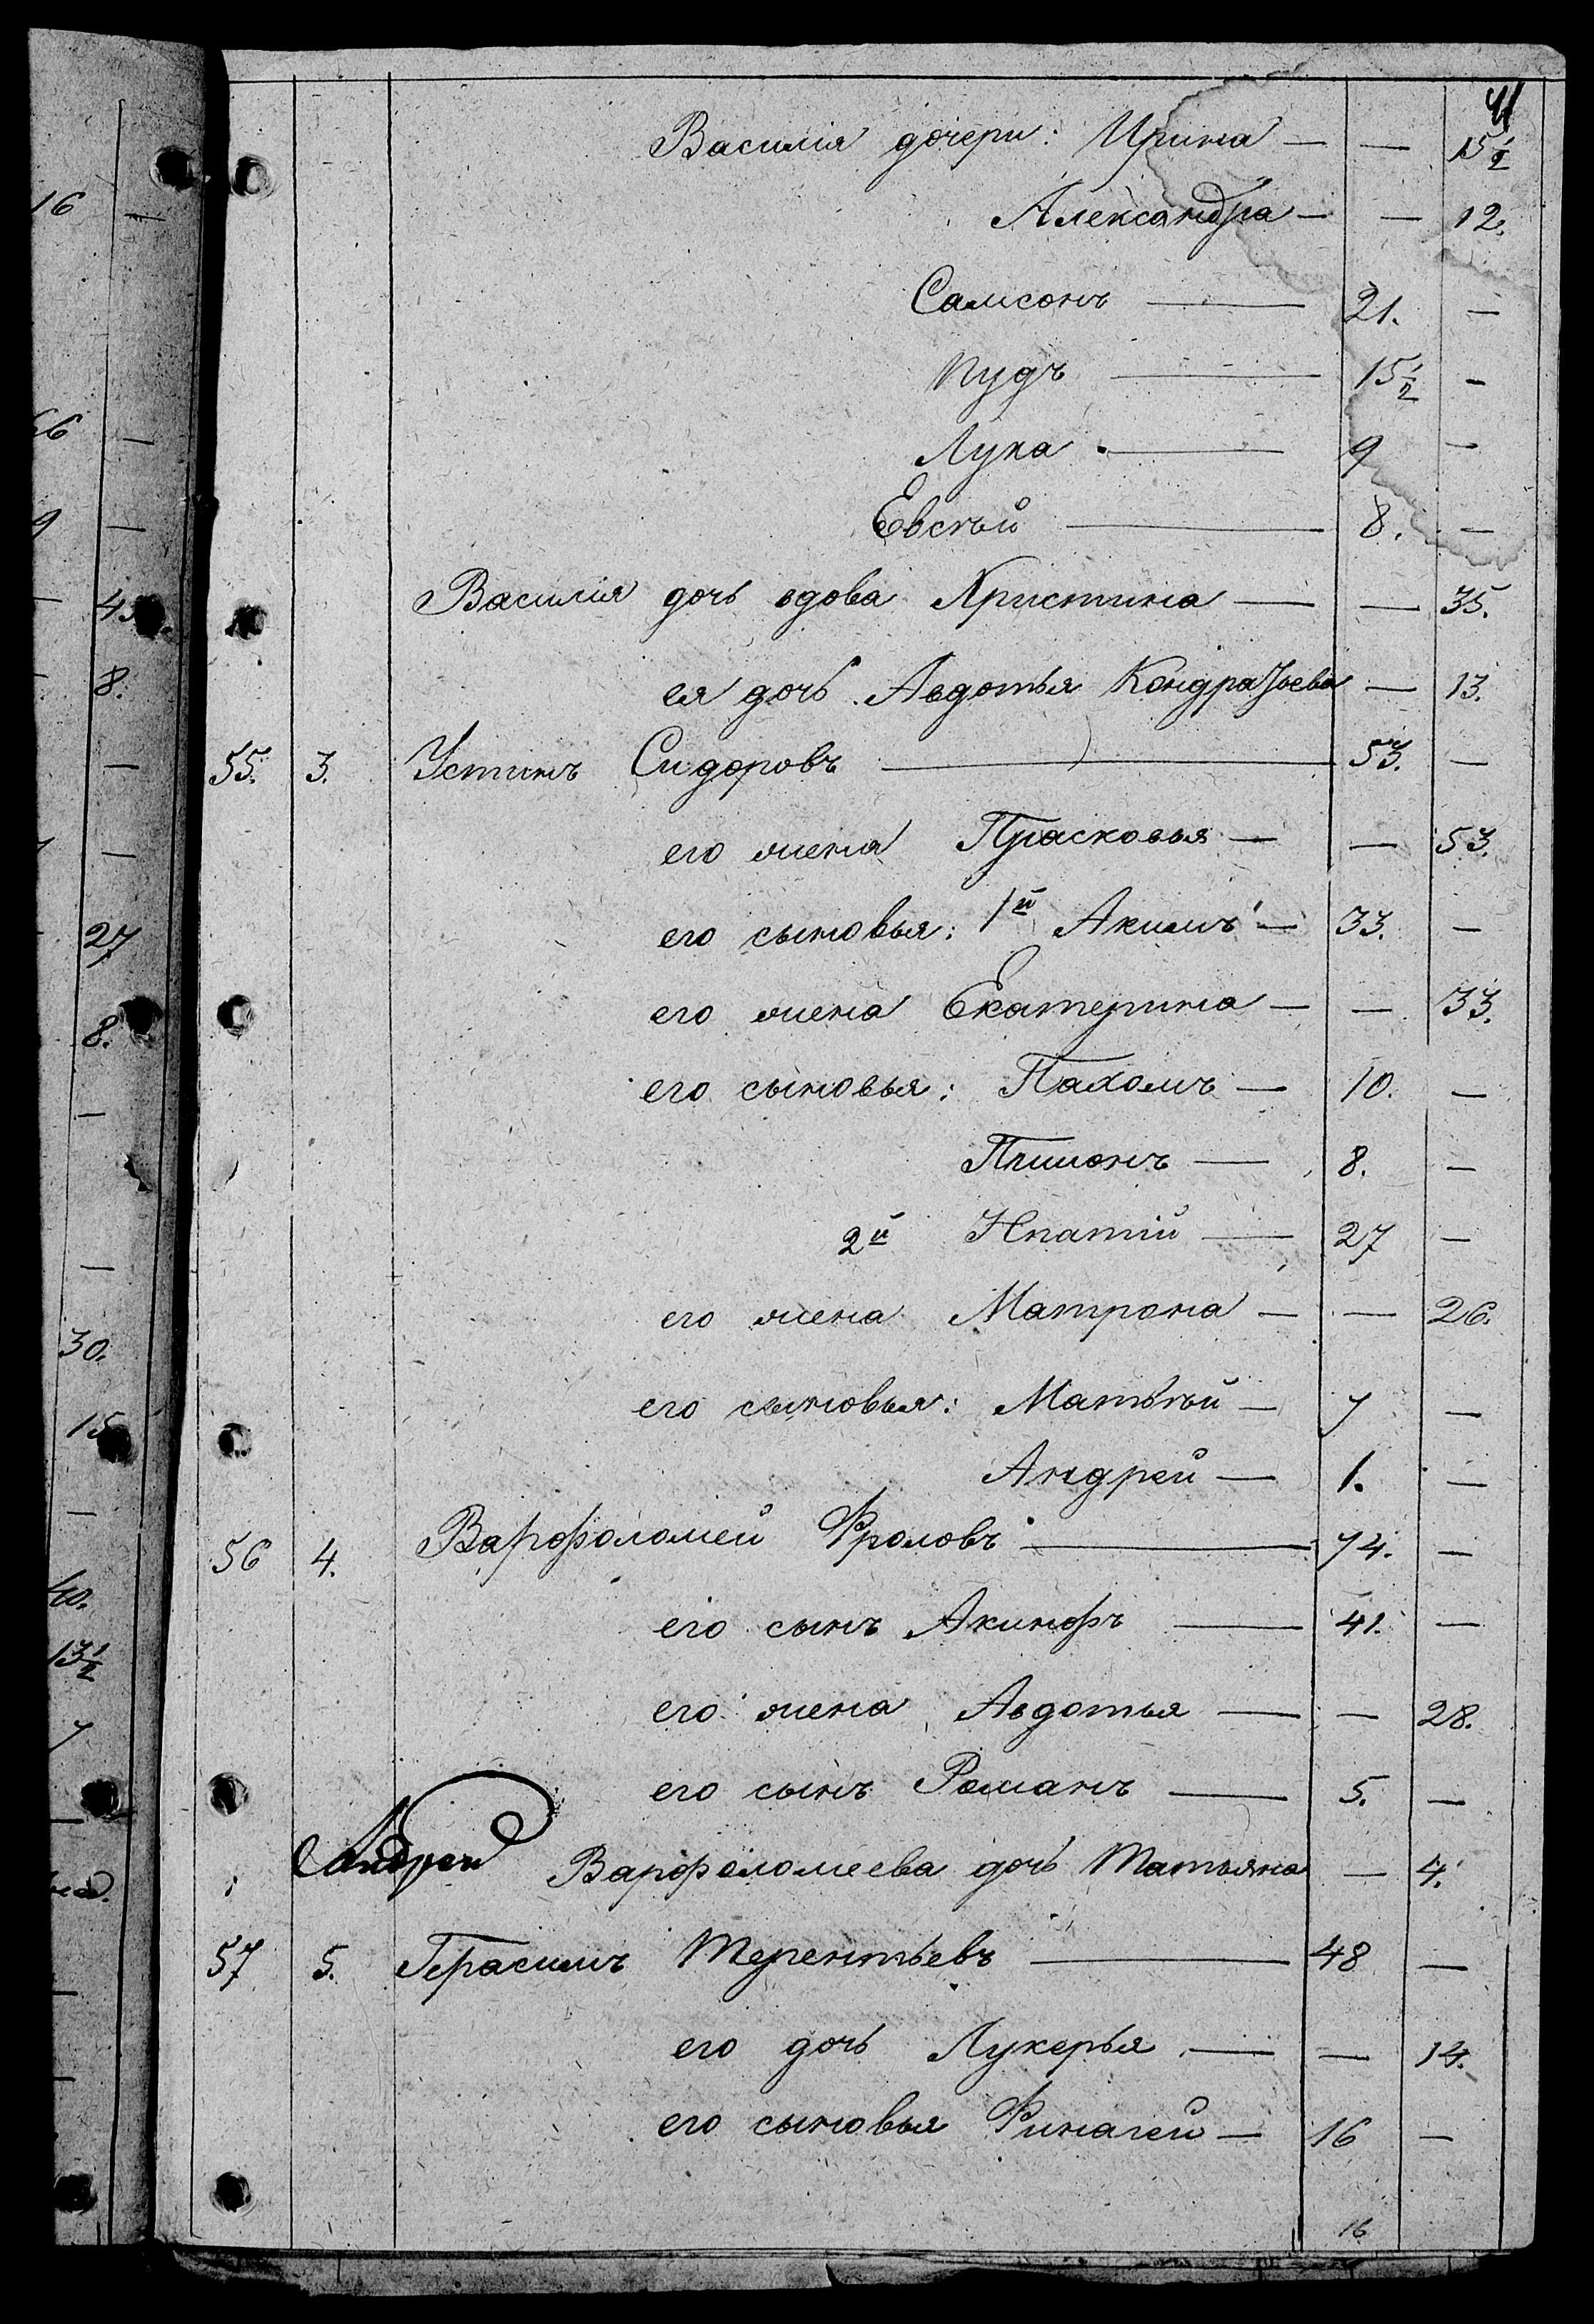 41
Василія дочери: Ирина — — 15½
Александра — — 12.
Самсонъ — 21. —
Пудъ — 15½ —
Лука — 9 —
Евсѣй — 8. —
Василія дочь вдова Христина — — 35.
ея дочь Авдотья Кондратьева — 13.
55. 3. Устинъ Сидоровъ — 53. —
его жена Прасковья — — 53.
его сыновья: 1й Акимъ — 33. —
его жена Екатерина — — 33.
его сыновья: Пахомъ — 10. —
Пимонъ — 8. —
2й Ипатій — 27 —
его жена Матрона — — 26.
его сыновья: Матвѣй — 7 —
Андрей — 1. —
56 4. Варфоломей Фроловъ — 74. —
его сынъ Акинфъ — 41. —
его жена Авдотья — — 28.
его сынъ Романъ — 5. —
Андрей Варфоломеева дочь Татьяна — 4.
57 5. Герасимъ Терентьевъ — 48 —
его дочь Лукерья — — 14.
его сыновья Финагей — 16 —
16